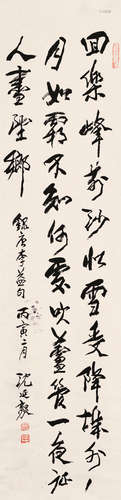 回樂峰前沙似雪受降城外
月如霜不知何處吹蘆管一夜征
人盡望鄉
錄唐李益句 丙寅二月 沈延毅